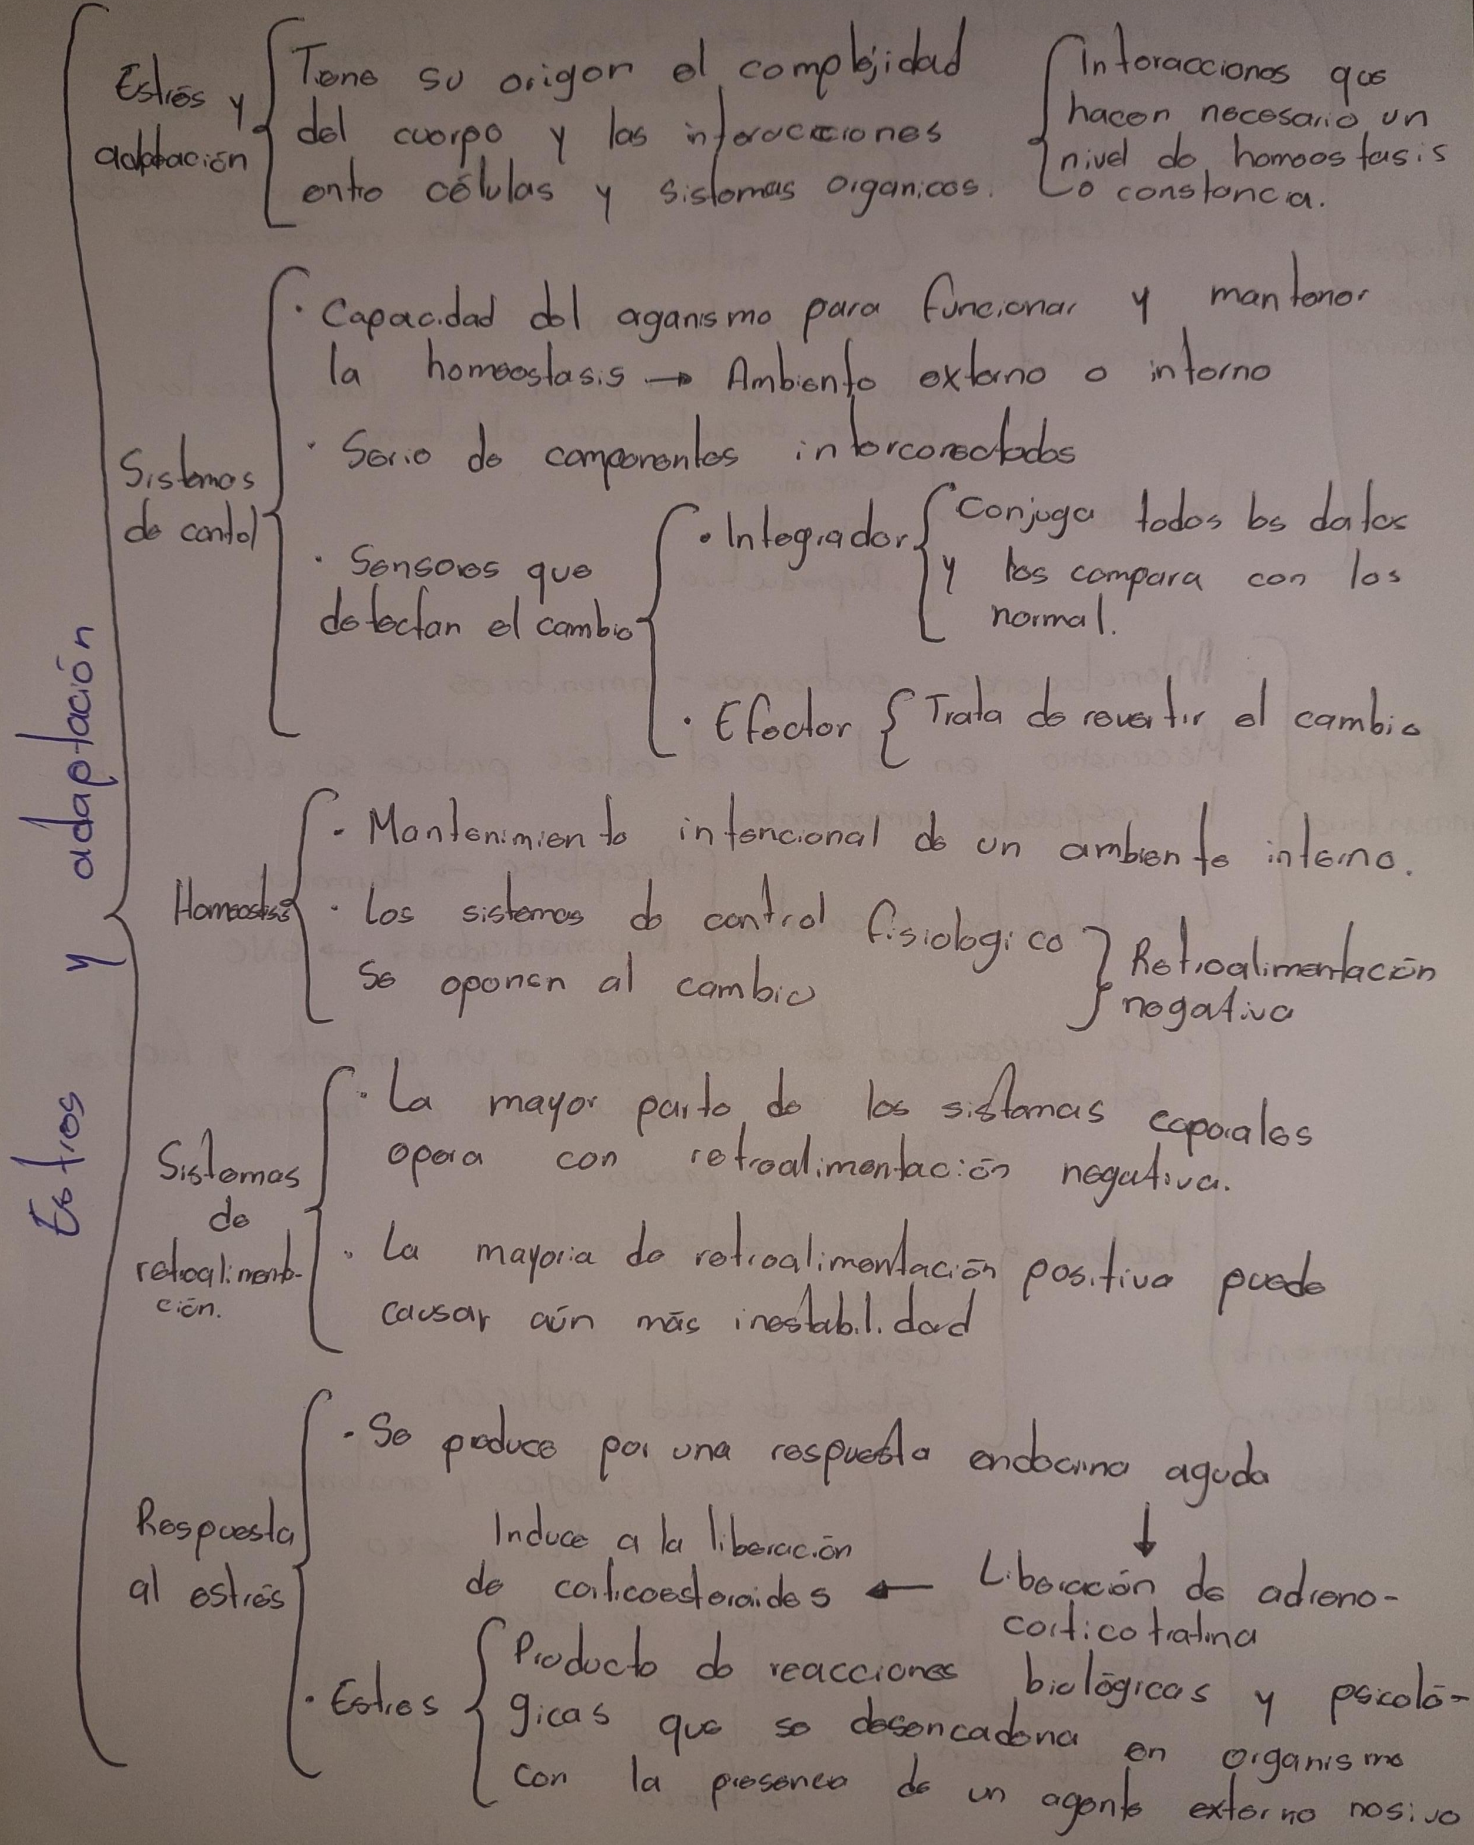 Estrés y adaptación
Estrés y
adaptación
Tiene su origen el complejidad
del cuerpo y las interacciones
entre células y sistemas organicos.
Interacciones que
hacen necesario un
nivel de homeostasis
o constancia.
Sistemas
de contol
· Capacidad del oganismo para funcionar y mantener
la homeostasis → Ambiente externo o interno
· Serie de componentes interconectados
· Sensores que
detectan el cambio
· Integrador
Conjuga todos los datos
y los compara con los
normal.
· Efector
Trata de revertir el cambio
Homeostasis
· Mantenimiento intencional de un ambiente interno.
· Los sistemas de control fisiologico
se oponen al cambio
Retroalimentación
negativa
Sistemas
de
retroalimenta-
ción.
· La mayor parte de los sistemas coporales
opera con retroalimentación negativa.
· La mayoria de retroalimentación positiva puede
causar aún más inestabilidad
Respuesta
al estrés
· Se produce por una respuesta endocrina aguda
↓
Induce a la liberación
de corticoesteroides ← Liberación de adreno-
corticotratina
· Estres
Producto de reacciones biológicas y psicoló-
gicas que se desencadena en organismo
con la presencia de un agente externo nosivo